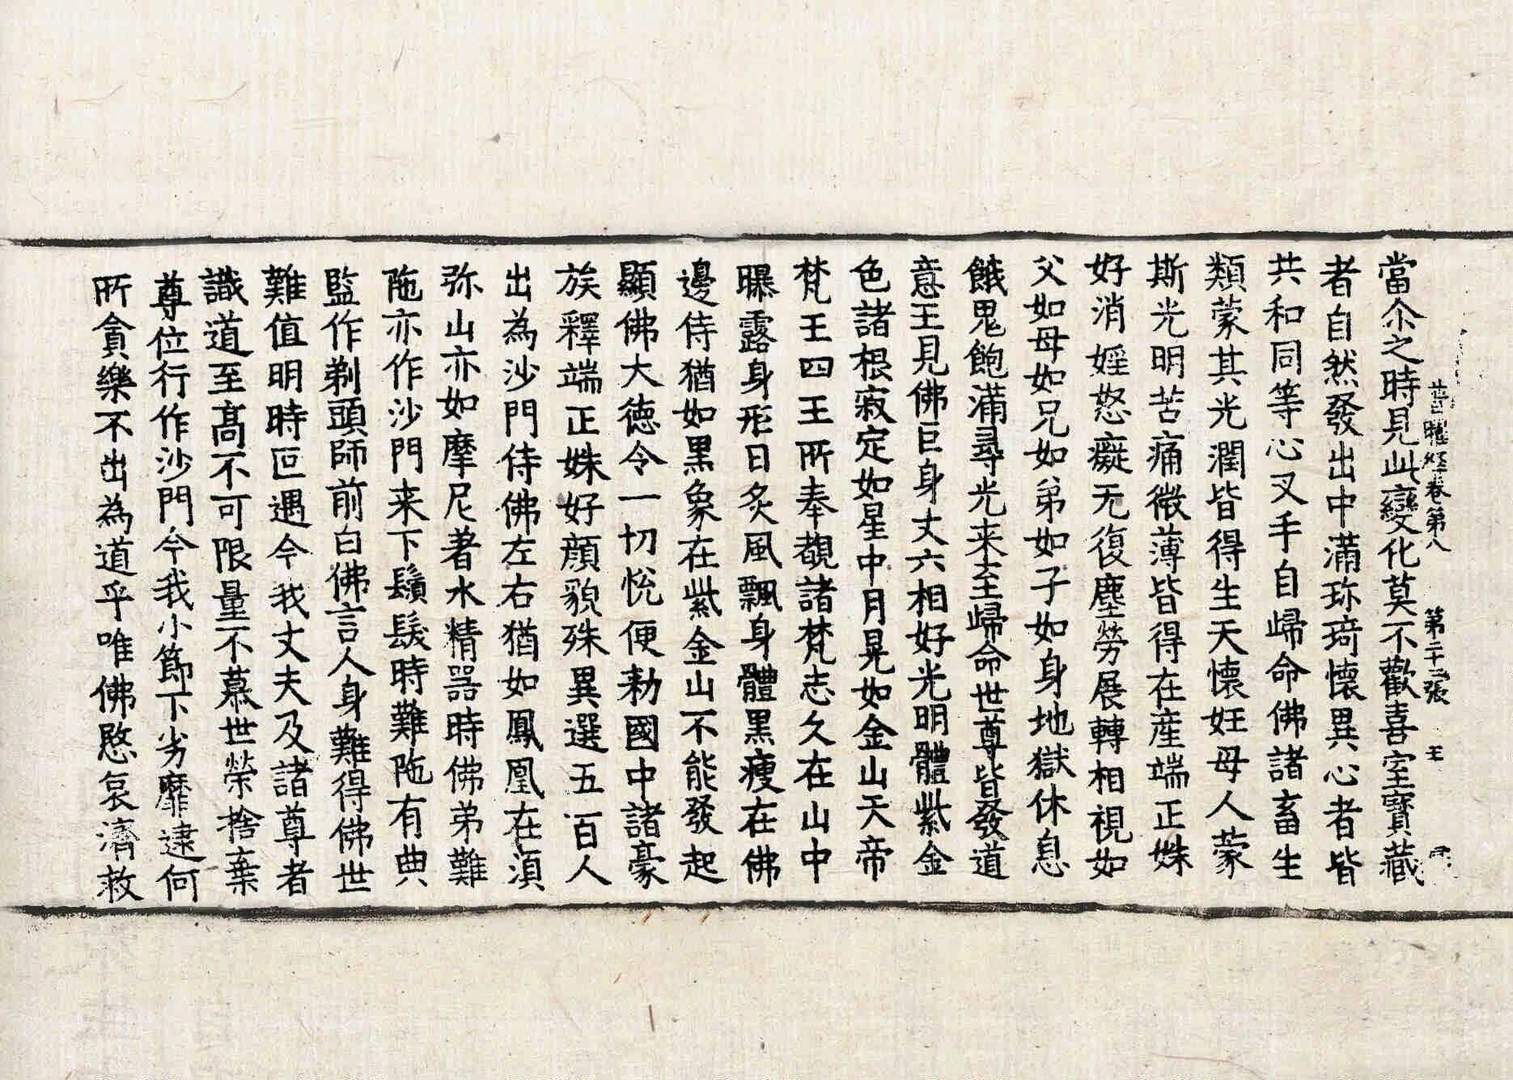 當尒之時見此變化莫不歡喜室寶藏
普曜経卷第八 第二十三張 王
者自然發出中滿珎琦懷異心者皆
共和同等心叉手自歸命佛諸畜生
類蒙其光潤皆得生天懷妊母人蒙
斯光明苦痛微薄皆得在産端正姝
好消婬怒癡无復塵勞展轉相視如
父如母如兄如弟如子如身地獄休息
餓鬼飽滿尋光来至歸命世尊皆發道
意王見佛巨身丈六相好光明體紫金
色諸根寂定如星中月晃如金山天帝
梵王四王所奉覩諸梵志久在山中
曝露身形日炙風飄身體黒瘦在佛
邊侍猶如黒象在紫金山不能發起
顯佛大德令一切悅便勑國中諸豪
族釋端正姝好顔貌殊異選五百人
出為沙門侍佛左右猶如鳳凰在湏
弥山亦如摩尼著水精器時佛弟難
陁亦作沙門来下鬚髮時難陁有典
監作剃頭師前白佛言人身難得佛世
難值明時叵遇今我丈夫及諸尊者
識道至髙不可限量不慕世榮捨棄
尊位行作沙門今我小節下劣靡逮何
所貪樂不出為道乎唯佛愍哀濟救